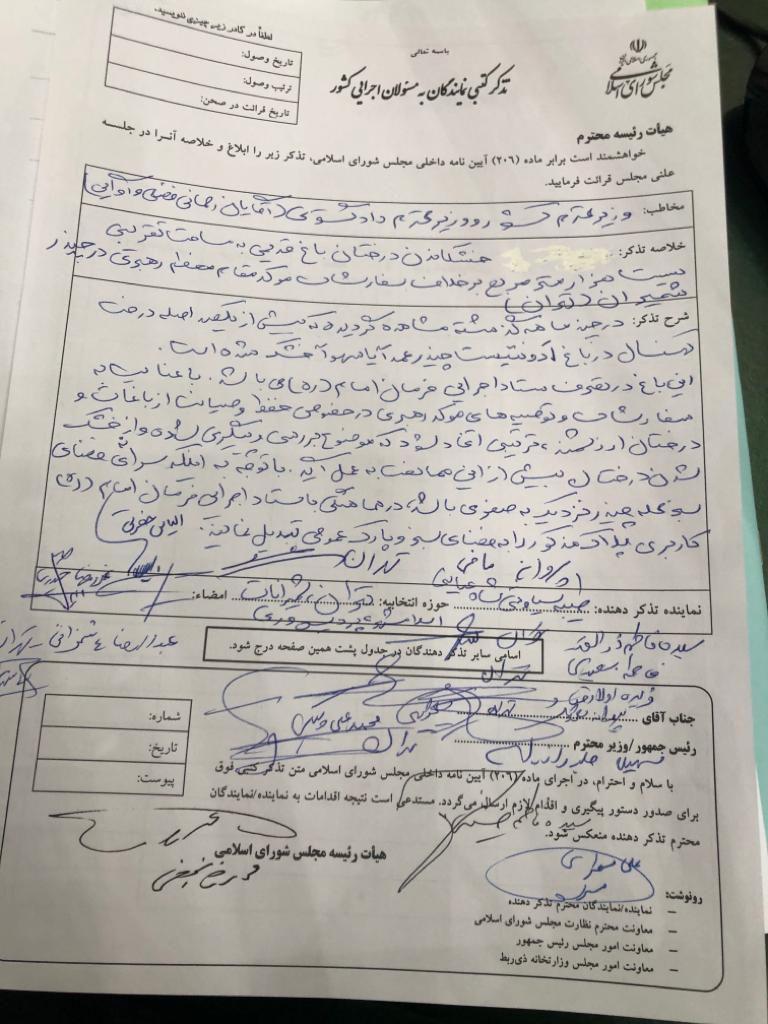 لطفاً در کادر زیر چیزی ننویسید.
تاریخ وصول:
ترتیب وصول:
تاریخ قرائت در صحن:
باسمه تعالی
تذکر کتبی نمایندگان به مسئولان اجرایی کشور
جمهوری اسلامی ایران
مجلس شورای اسلامی
هیأت رئیسه محترم
خواهشمند است برابر ماده (۲۰۶) آیین نامه داخلی مجلس شورای اسلامی، تذکر زیر را ابلاغ و خلاصه آنرا در جلسه
علنی مجلس قرائت فرمایید.
مخاطب: وزیر محترم کشور و وزیر محترم دادگستری (آقایان رحمانی فضلی و آوایی)
خلاصه تذکر: خشکاندن درختان باغ قدیمی به مساحت تقریبی
بیست هزار متر مربع برخلاف سفارشات موکد مقام معظم رهبری در چیذر
شمیران (تهران)
شرح تذکر: در چند ماهه گذشته مشاهده گردیده که بیش از یکصد اصله درخت
کهنسال در باغ چیذر عمداً یا سهواً خشک شده است.
این باغ در تصرف ستاد اجرایی فرمان امام (ره) می باشد. با عنایت به
سفارشات و توصیه های موکد رهبری در خصوص حفظ و صیانت از باغات و
درختان ارزشمند، ترتیبی اتخاذ شود که موضوع بررسی و پیگیری شده و از خشک
شدن درختان بیش از این ممانعت به عمل آید. با توجه به اینکه سرانه فضای
سبز محله چیذر نزدیک به صفر می باشد، در هماهنگی با ستاد اجرایی فرمان امام (ره)
کاربری پلاک مذکور را به فضای سبز و پارک عمومی تبدیل نمایید.
پروانه مافی
تهران
نماینده تذکر دهنده: حوزه انتخابیه: امضاء:
سیده فاطمه ذوالقدر
فاطمه سعیدی
تهران
اسامی سایر تذکر دهندگان در جدول پشت همین صفحه درج شود.
فریده اولادقباد
جناب آقای
رئیس جمهور/وزیر محترم
شماره:
تاریخ:
پیوست:
با سلام و احترام، در اجرای ماده (۲۰۶) آیین نامه داخلی مجلس شورای اسلامی متن تذکر کتبی فوق
برای صدور دستور پیگیری و اقدام لازم ارسال می‌گردد. مستدعی است نتیجه اقدامات به نماینده/نمایندگان
محترم تذکر دهنده منعکس شود.
هیأت رئیسه مجلس شورای اسلامی
رونوشت:
– نماینده/نمایندگان محترم تذکر دهنده
– معاونت محترم نظارت مجلس شورای اسلامی
– معاونت امور مجلس رئیس جمهور
– معاونت امور مجلس وزارتخانه ذی‌ربط